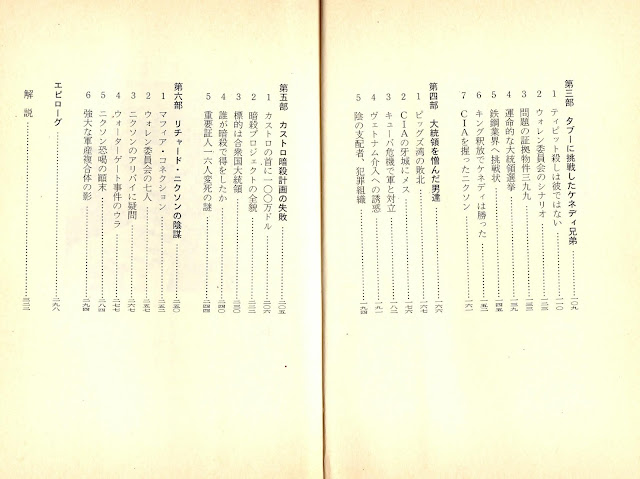 第三部 タブーに挑戦したケネディ兄弟……一〇九
1 ティピット殺しは彼ではない……一一〇
2 ウォレン委員会のシナリオ……一二三
3 問題の証拠物件三九九……一三三
4 運命的な大統領選挙……一三九
5 鉄鋼業界へ挑戦状……一四五
6 キング釈放でケネディは勝った……一五二
7 CIAを握ったニクソン……一六一
第四部 大統領を憎んだ男達……一六六
1 ピッグズ湾の敗北……一六七
2 CIAの牙城にメス……一七六
3 キューバ危機で軍と対立……一八二
4 ヴェトナム介入への誘惑……一九一
5 陰の支配者、犯罪組織……一九四
第五部 カストロ暗殺計画の失敗……二〇五
1 カストロの首に一〇〇万ドル……二〇六
2 暗殺プロジェクトの全貌……二二二
3 標的は合衆国大統領……二三〇
4 誰が暗殺で得をしたか……二四〇
5 重要証人一六人変死の謎……二四四
第六部 リチャード・ニクソンの陰謀……二五〇
1 マフィア・コネクション……二五二
2 ウォレン委員会の七人……二五七
3 ニクソンのアリバイに疑問……二六七
4 ウォーターゲート事件のウラ……二七七
5 ニクソン恐喝の顛末……二八四
6 強大な軍産複合体の影……二九四
エピローグ……二九八
解説……三〇二